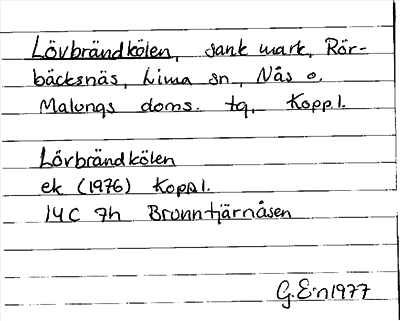 Lövbrändkölen, sank mark, Rör-
bäcksnäs, Lima sn, Nås o.
Malungs doms. tg, Koppl.
Lövbrändkölen
ek (1976) Koppl.
14C 7h Brunntjärnåsen
G.E:n 1977